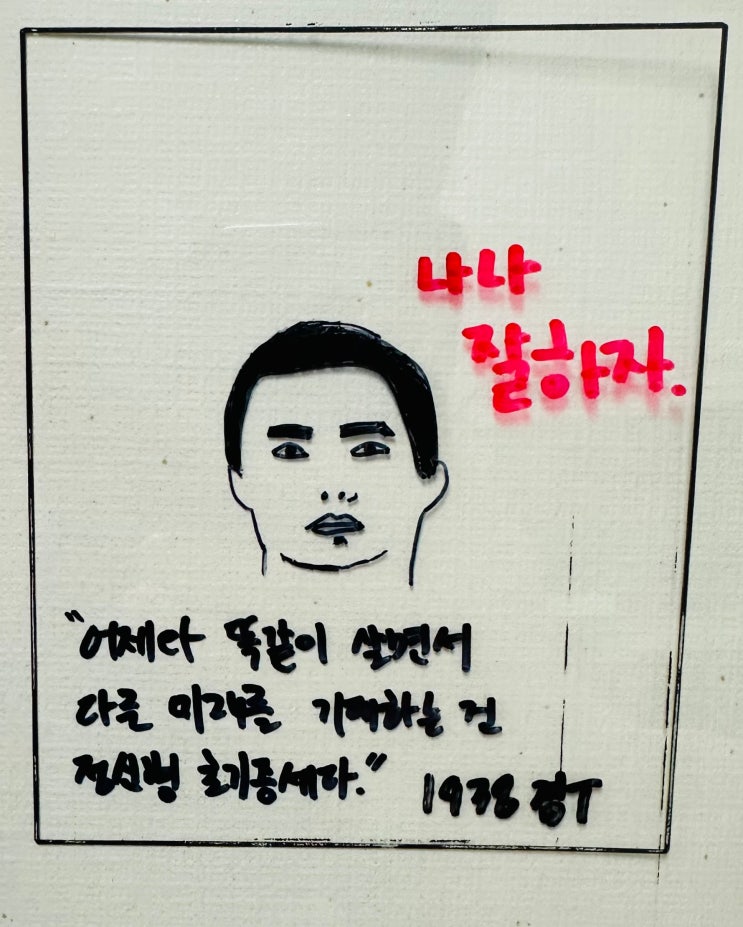 나나
잘하자.
"어제라 똑같이 살면서
다른 미래를 기대하는 건
정신병 초기증세다."
1938 짐T